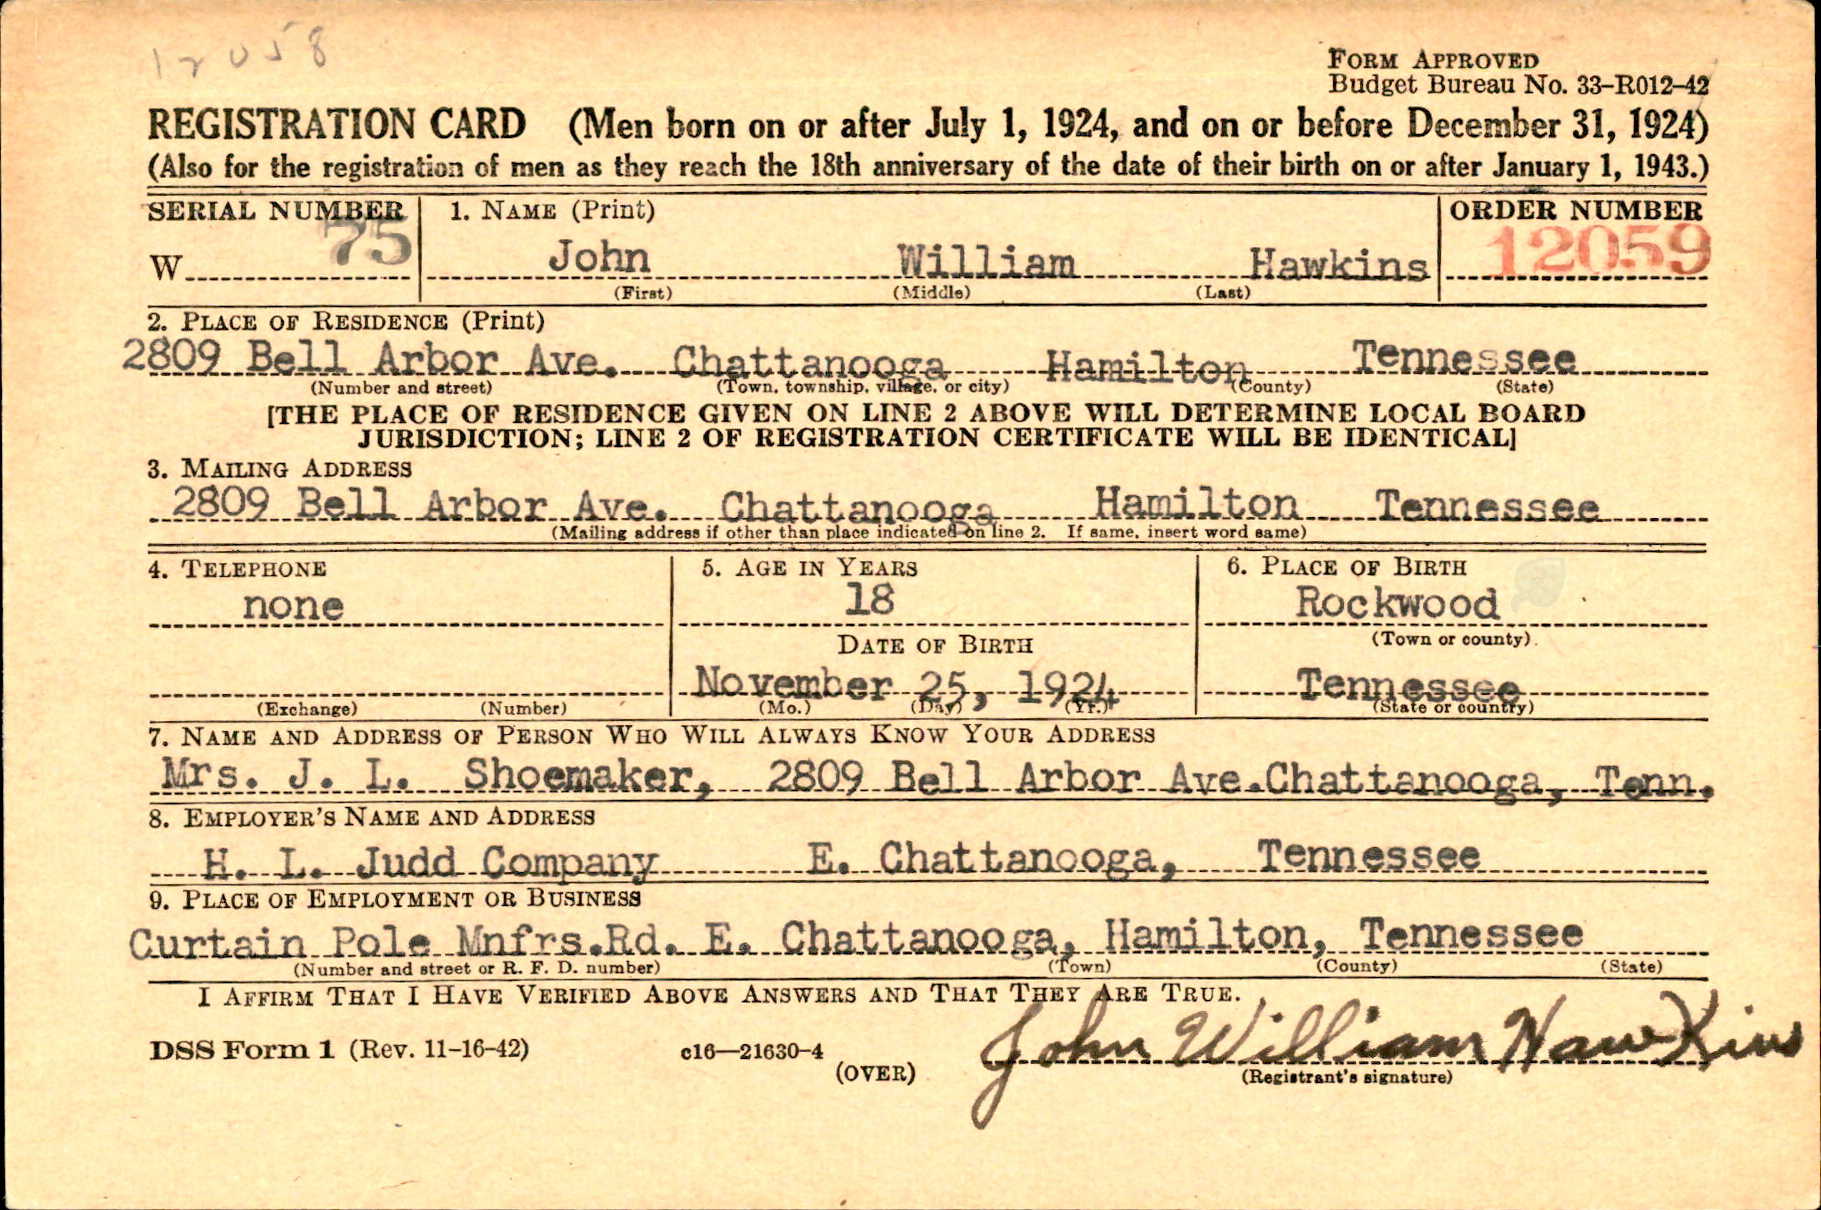 12058
FORM APPROVED
Budget Bureau No. 33-R012-42
REGISTRATION CARD (Men born on or after July 1, 1924, and on or before December 31, 1924)
(Also for the registration of men as they reach the 18th anniversary of the date of their birth on or after January 1, 1943.)
SERIAL NUMBER 1. NAME (Print) ORDER NUMBER
W 75 John William Hawkins 12059
(First) (Middle) (Last)
2. PLACE OF RESIDENCE (Print)
2809 Bell Arbor Ave. Chattanooga Hamilton Tennessee
(Number and street) (Town, township, village, or city) (County) (State)
[THE PLACE OF RESIDENCE GIVEN ON LINE 2 ABOVE WILL DETERMINE LOCAL BOARD
JURISDICTION; LINE 2 OF REGISTRATION CERTIFICATE WILL BE IDENTICAL]
3. MAILING ADDRESS
2809 Bell Arbor Ave. Chattanooga Hamilton Tennessee
(Mailing address if other than place indicated on line 2. If same, insert word same)
4. TELEPHONE 5. AGE IN YEARS 6. PLACE OF BIRTH
none 18 Rockwood
DATE OF BIRTH (Town or county)
November 25, 1924 Tennessee
(Exchange) (Number) (Mo.) (Day) (Yr.) (State or country)
7. NAME AND ADDRESS OF PERSON WHO WILL ALWAYS KNOW YOUR ADDRESS
Mrs. J. L. Shoemaker, 2809 Bell Arbor Ave.Chattanooga, Tenn.
8. EMPLOYER'S NAME AND ADDRESS
H. L. Judd Company E. Chattanooga, Tennessee
9. PLACE OF EMPLOYMENT OR BUSINESS
Curtain Pole Mnfrs.Rd. E. Chattanooga, Hamilton, Tennessee
(Number and street or R. F. D. number) (Town) (County) (State)
I AFFIRM THAT I HAVE VERIFIED ABOVE ANSWERS AND THAT THEY ARE TRUE.
DSS Form 1 (Rev. 11-16-42) c16—21630-4 John William Hawkins
(OVER) (Registrant's signature)